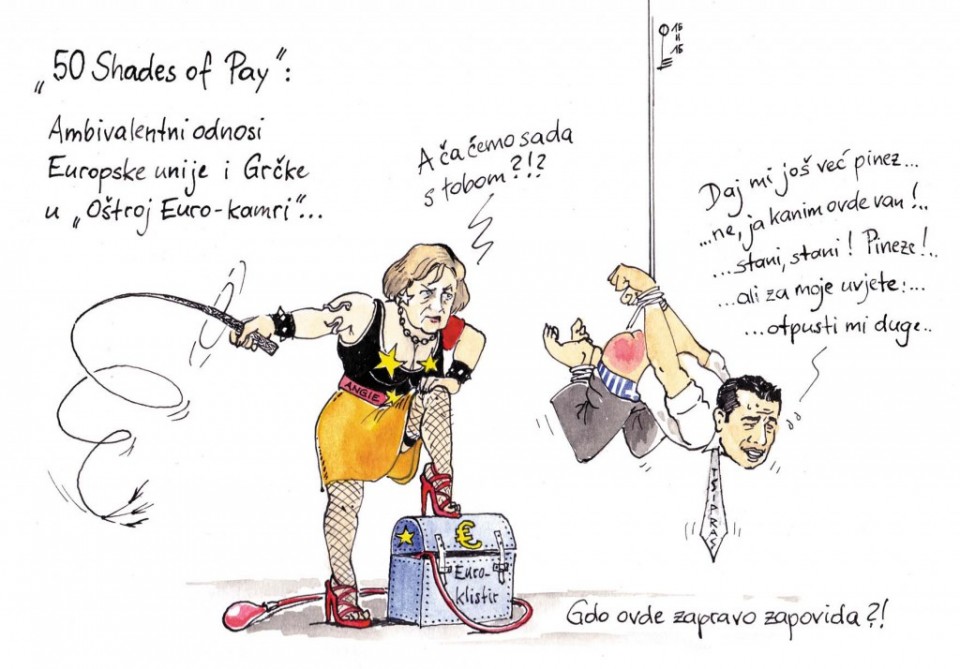 „50 Shades of Pay“:
Ambivalentni odnosi
Europske unije i Grčke
u „Oštroj Euro-kamri“...
A ča ćemo sada
s tobom?!?
Daj mi još već pinez...
...ne, ja kanim ovde van!..
...stani, stani! Pineze!..
...ali za moje uvjete:...
...otpusti mi duge..
ANGIE
TSIPRAS
€
Euro-
klistir
Gdo ovde zapravo zapovida?!
15
15